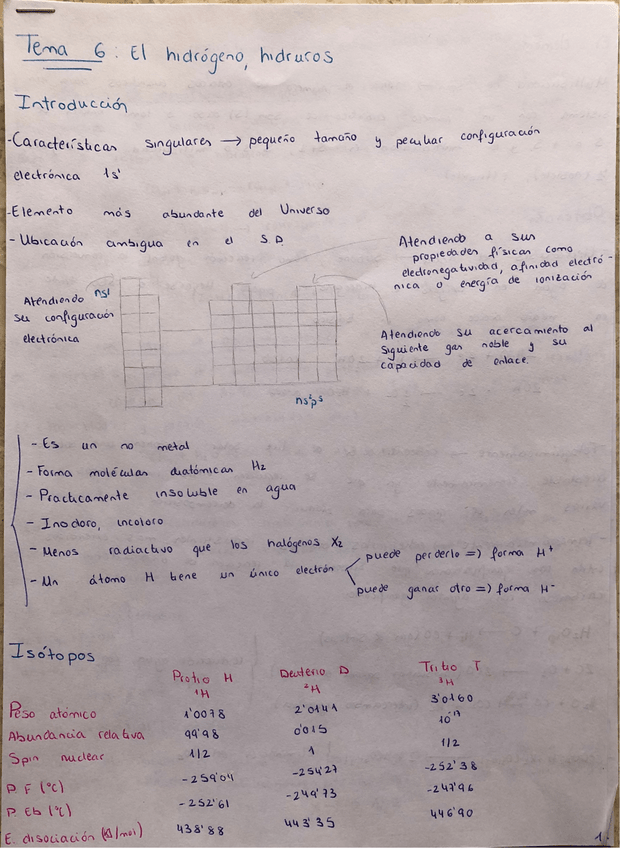 Tema 6: El hidrógeno, hidruros
Introducción
-Características singulares → pequeño tamaño y peculiar configuración
electrónica 1s¹
-Elemento más abundante del Universo
-Ubicación ambigua en el S.P
Atendiendo a sus
propiedades físicas como
electronegatividad, afinidad electró-
nica o energía de ionización
Atendiendo ns1
su configuración
electrónica
Atendiendo su acercamiento al
siguiente gas noble y su
capacidad de enlace.
ns²p⁵
- Es un no metal
- Forma moléculas diatómicas H₂
- Practicamente insoluble en agua
- Inodoro, incoloro
- Menos radiactivo que los halógenos X₂
- Un átomo H tiene un único electrón
puede perderlo => forma H⁺
puede ganar otro => forma H⁻
Isótopos
Protio H Deuterio D Tritio T
¹H ²H ³H
Peso atómico 1'0078 2'0141 3'0160
Abundancia relativa 99'98 0'015 10⁻¹⁷
Spin nuclear 1/2 1 1/2
P. F (ºC) -259'04 -254'27 -252'38
P. Eb (ºC) -252'61 -249'73 -247'96
E. disociación (KJ/mol) 438'88 443'35 446'90
1.